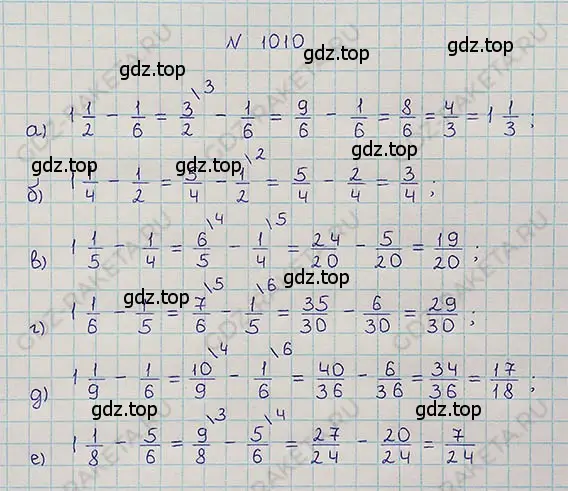 N 1010
gdz.top gdz.top
gdz.top
а) 1 1/2 - 1/6 = 3/2 \3 - 1/6 = 9/6 - 1/6 = 8/6 = 4/3 = 1 1/3 ;
gdz.top gdz.top
б) 1 1/4 - 1/2 = 5/4 - 1/2 \2 = 5/4 - 2/4 = 3/4 ;
gdz.top gdz.top
в) 1 1/5 - 1/4 = 6/5 \4 - 1/4 \5 = 24/20 - 5/20 = 19/20 ;
gdz.top
г) 1 1/6 - 1/5 = 7/6 \5 - 1/5 \6 = 35/30 - 6/30 = 29/30 ;
gdz.top gdz.top
д) 1 1/9 - 1/6 = 10/9 \4 - 1/6 \6 = 40/36 - 6/36 = 34/36 = 17/18 ;
gdz.top gdz.top
е) 1 1/8 - 5/6 = 9/8 \3 - 5/6 \4 = 27/24 - 20/24 = 7/24
GDZ-RAKETA.RU